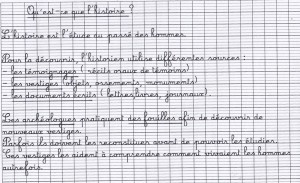 Qu'est-ce que l'histoire ?
L'histoire est l'étude du passé des hommes.
Pour la découvrir, l'historien utilise différentes sources :
- les témoignages ( récits oraux de témoins)
- les vestiges (objets, ossements, monuments)
- les documents écrits ( lettres, livres, journaux)
Les archéologues pratiquent des fouilles afin de découvrir de
nouveaux vestiges.
Parfois ils doivent les reconstituer avant de pouvoir les étudier.
Ces vestiges les aident à comprendre comment vivaient les hommes
autrefois.